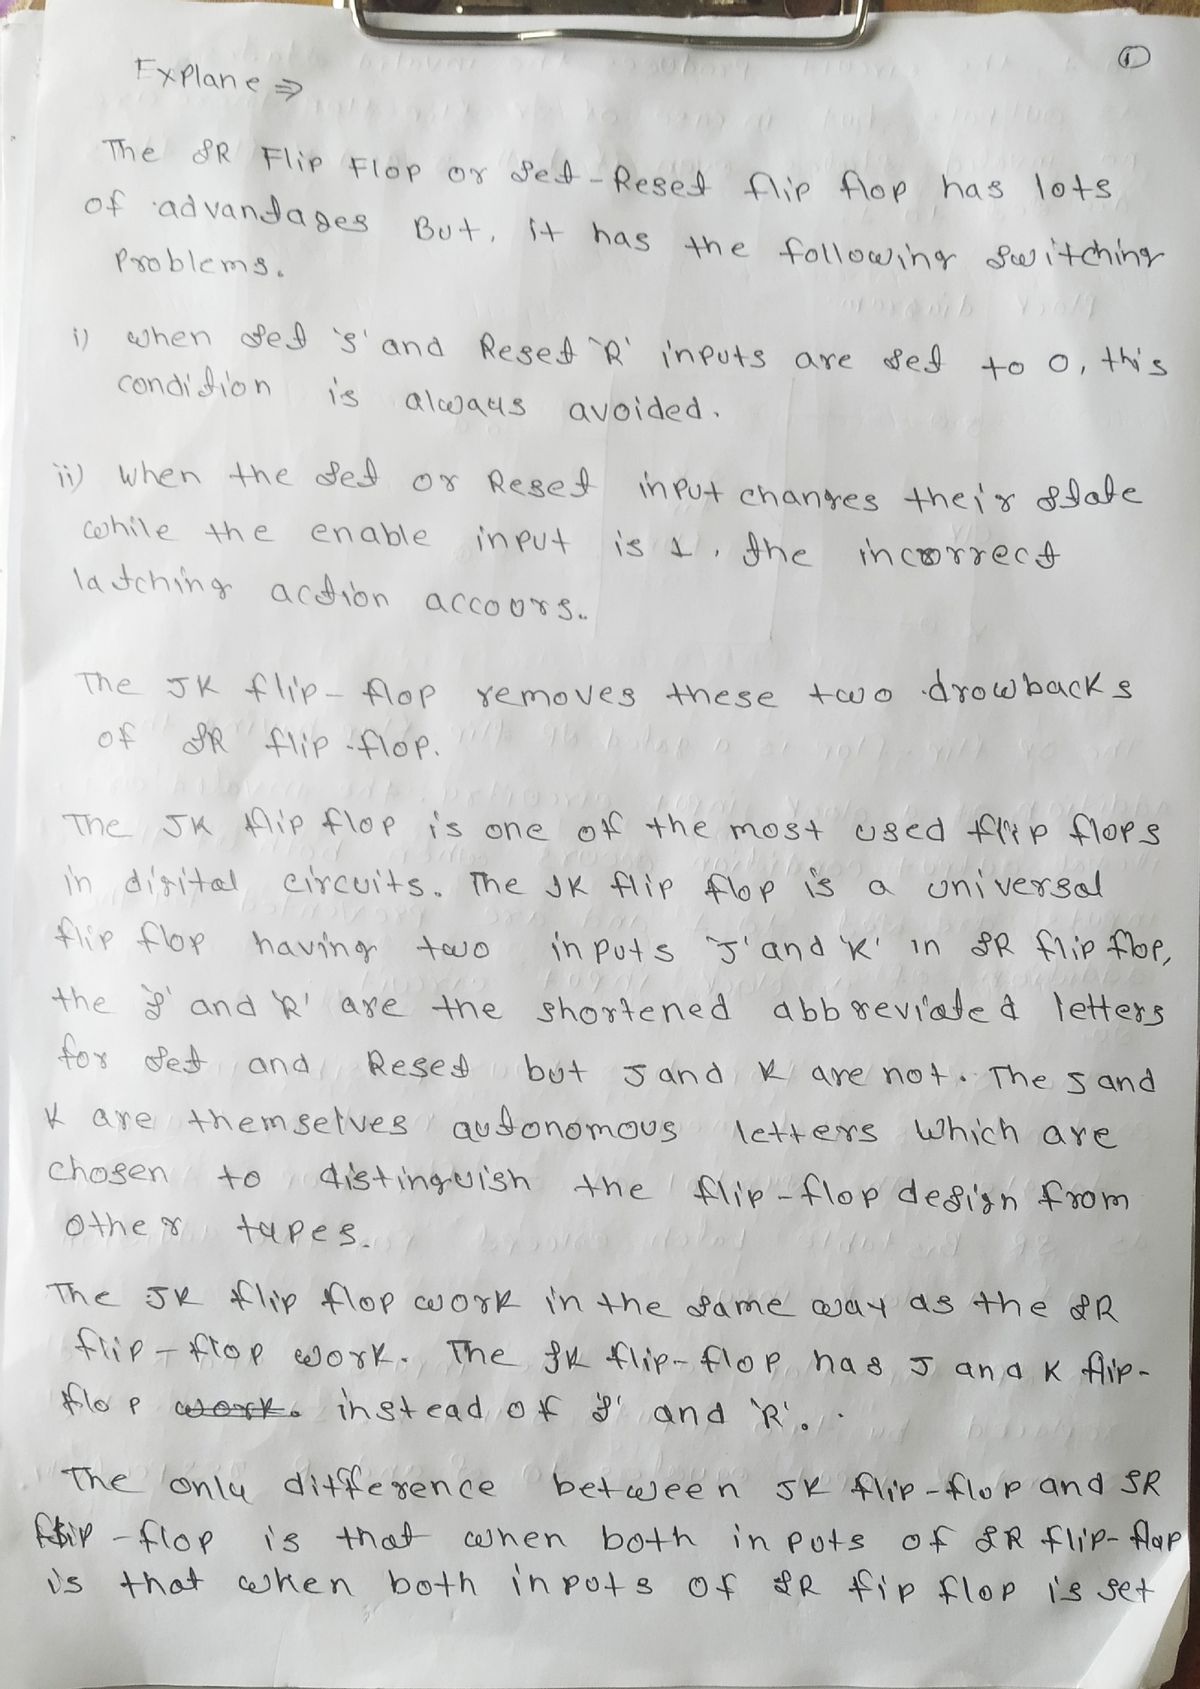 1
Explane ⇒
The SR Flip Flop or Set - Reset flip flop has lots
of advantages But, it has the following switching
Problems.
i) when set 's' and Reset 'R' inputs are set to 0, this
condition is always avoided.
ii) When the set or Reset input changes their state
while the enable input is 1, the incorrect
latching action accoors.
The JK flip - flop removes these two drowbacks
of SR flip - flop.
The JK flip flop is one of the most used flip flops
in digital circuits. The JK flip flop is a universal
flip flop having two inputs 'J' and 'K' in SR flip flop,
the 'S' and 'R' are the shortened abbreviated letters
for Set and Reset but J and K are not. The J and
K are themselves autonomous letters which are
chosen to distinguish the flip - flop design from
other types.
The JK flip flop work in the same way as the SR
flip - flop work. The JK flip - flop has J and K flip -
flop work. instead of 'S' and 'R'.
The only difference between JK flip - flop and SR
flip - flop is that when both inputs of SR flip - flop
is that when both inputs of SR fip flop is set